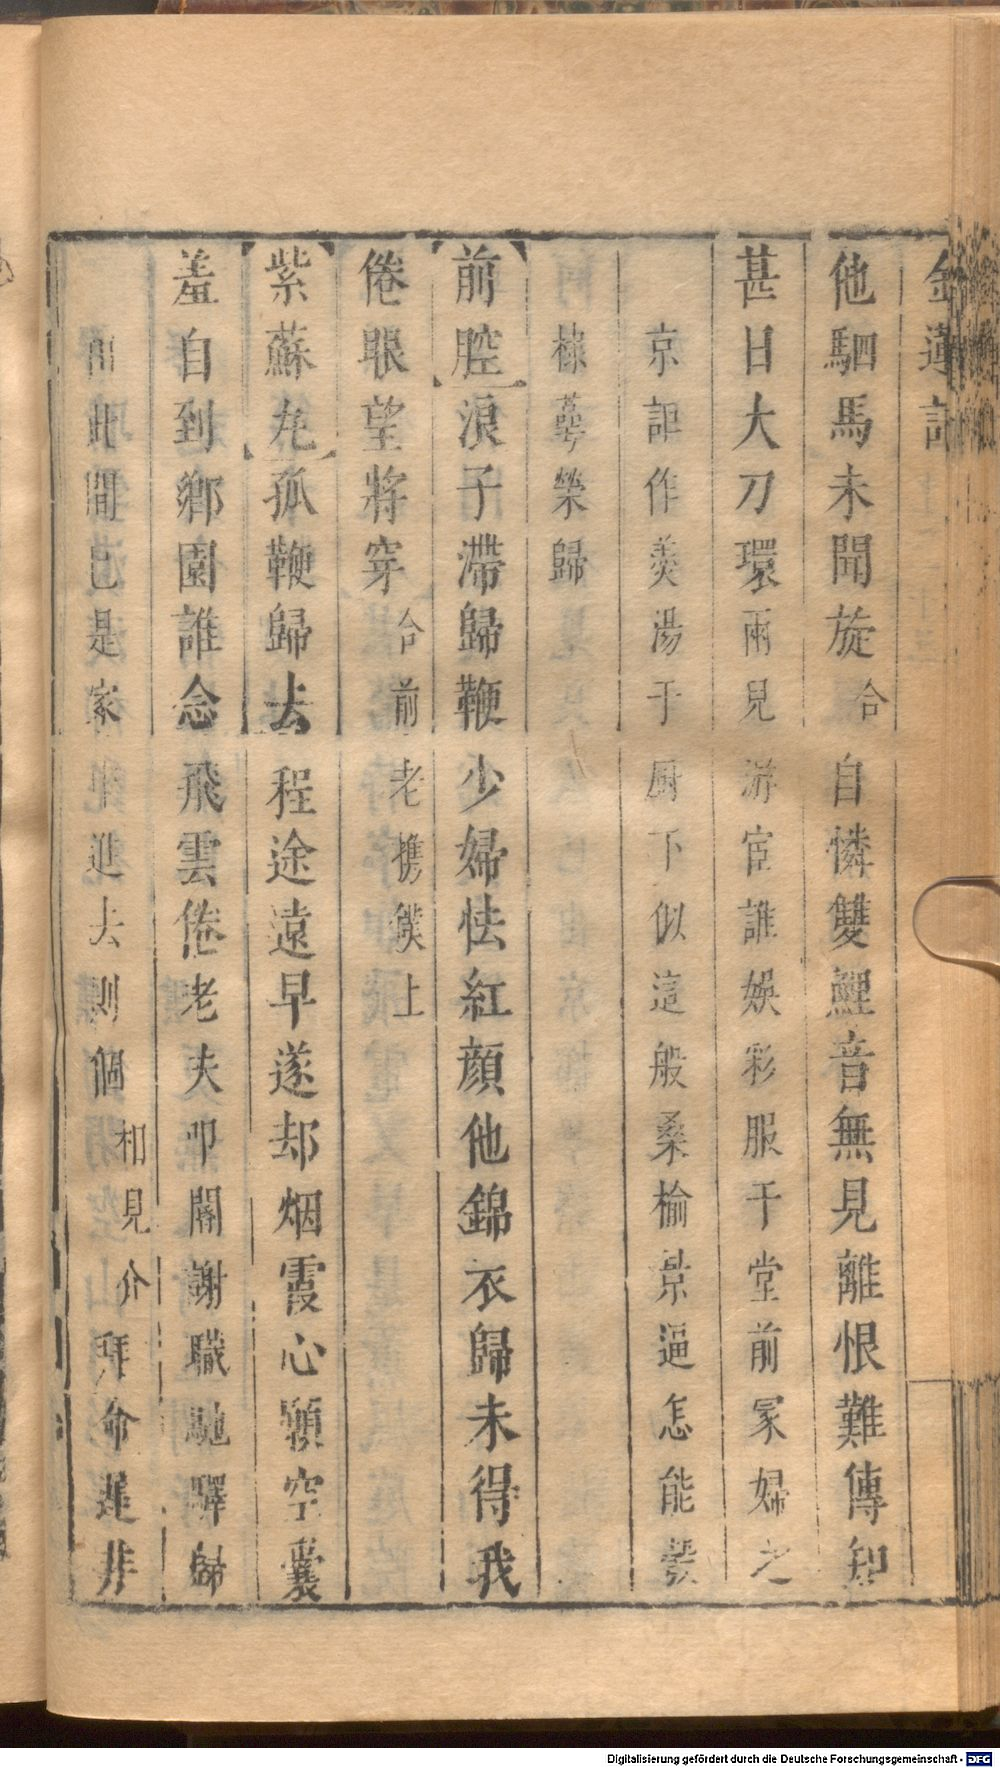 金蓮記
他駟馬未聞旋合自憐雙鯉音無見離恨難傳知
甚日大刀環兩見游宦誰娛彩服干堂前冢婦之
京詎作羹湯于厨下似這般桑榆景逼怎能發
棣萼榮歸
前腔浪子滯歸鞭少婦怯紅顏他錦衣歸未得我
倦眼望將穿合前老攜僕上
紫蘇丸孤鞭歸去程途遠早遂却烟霞心願空囊
羞自到鄉園誰念飛雲倦老夫叩閽謝職馳驛歸
田此間已是家 進去則個相見介拜命遲非
Digitalisierung gefördert durch die Deutsche Forschungsgemeinschaft - DFG